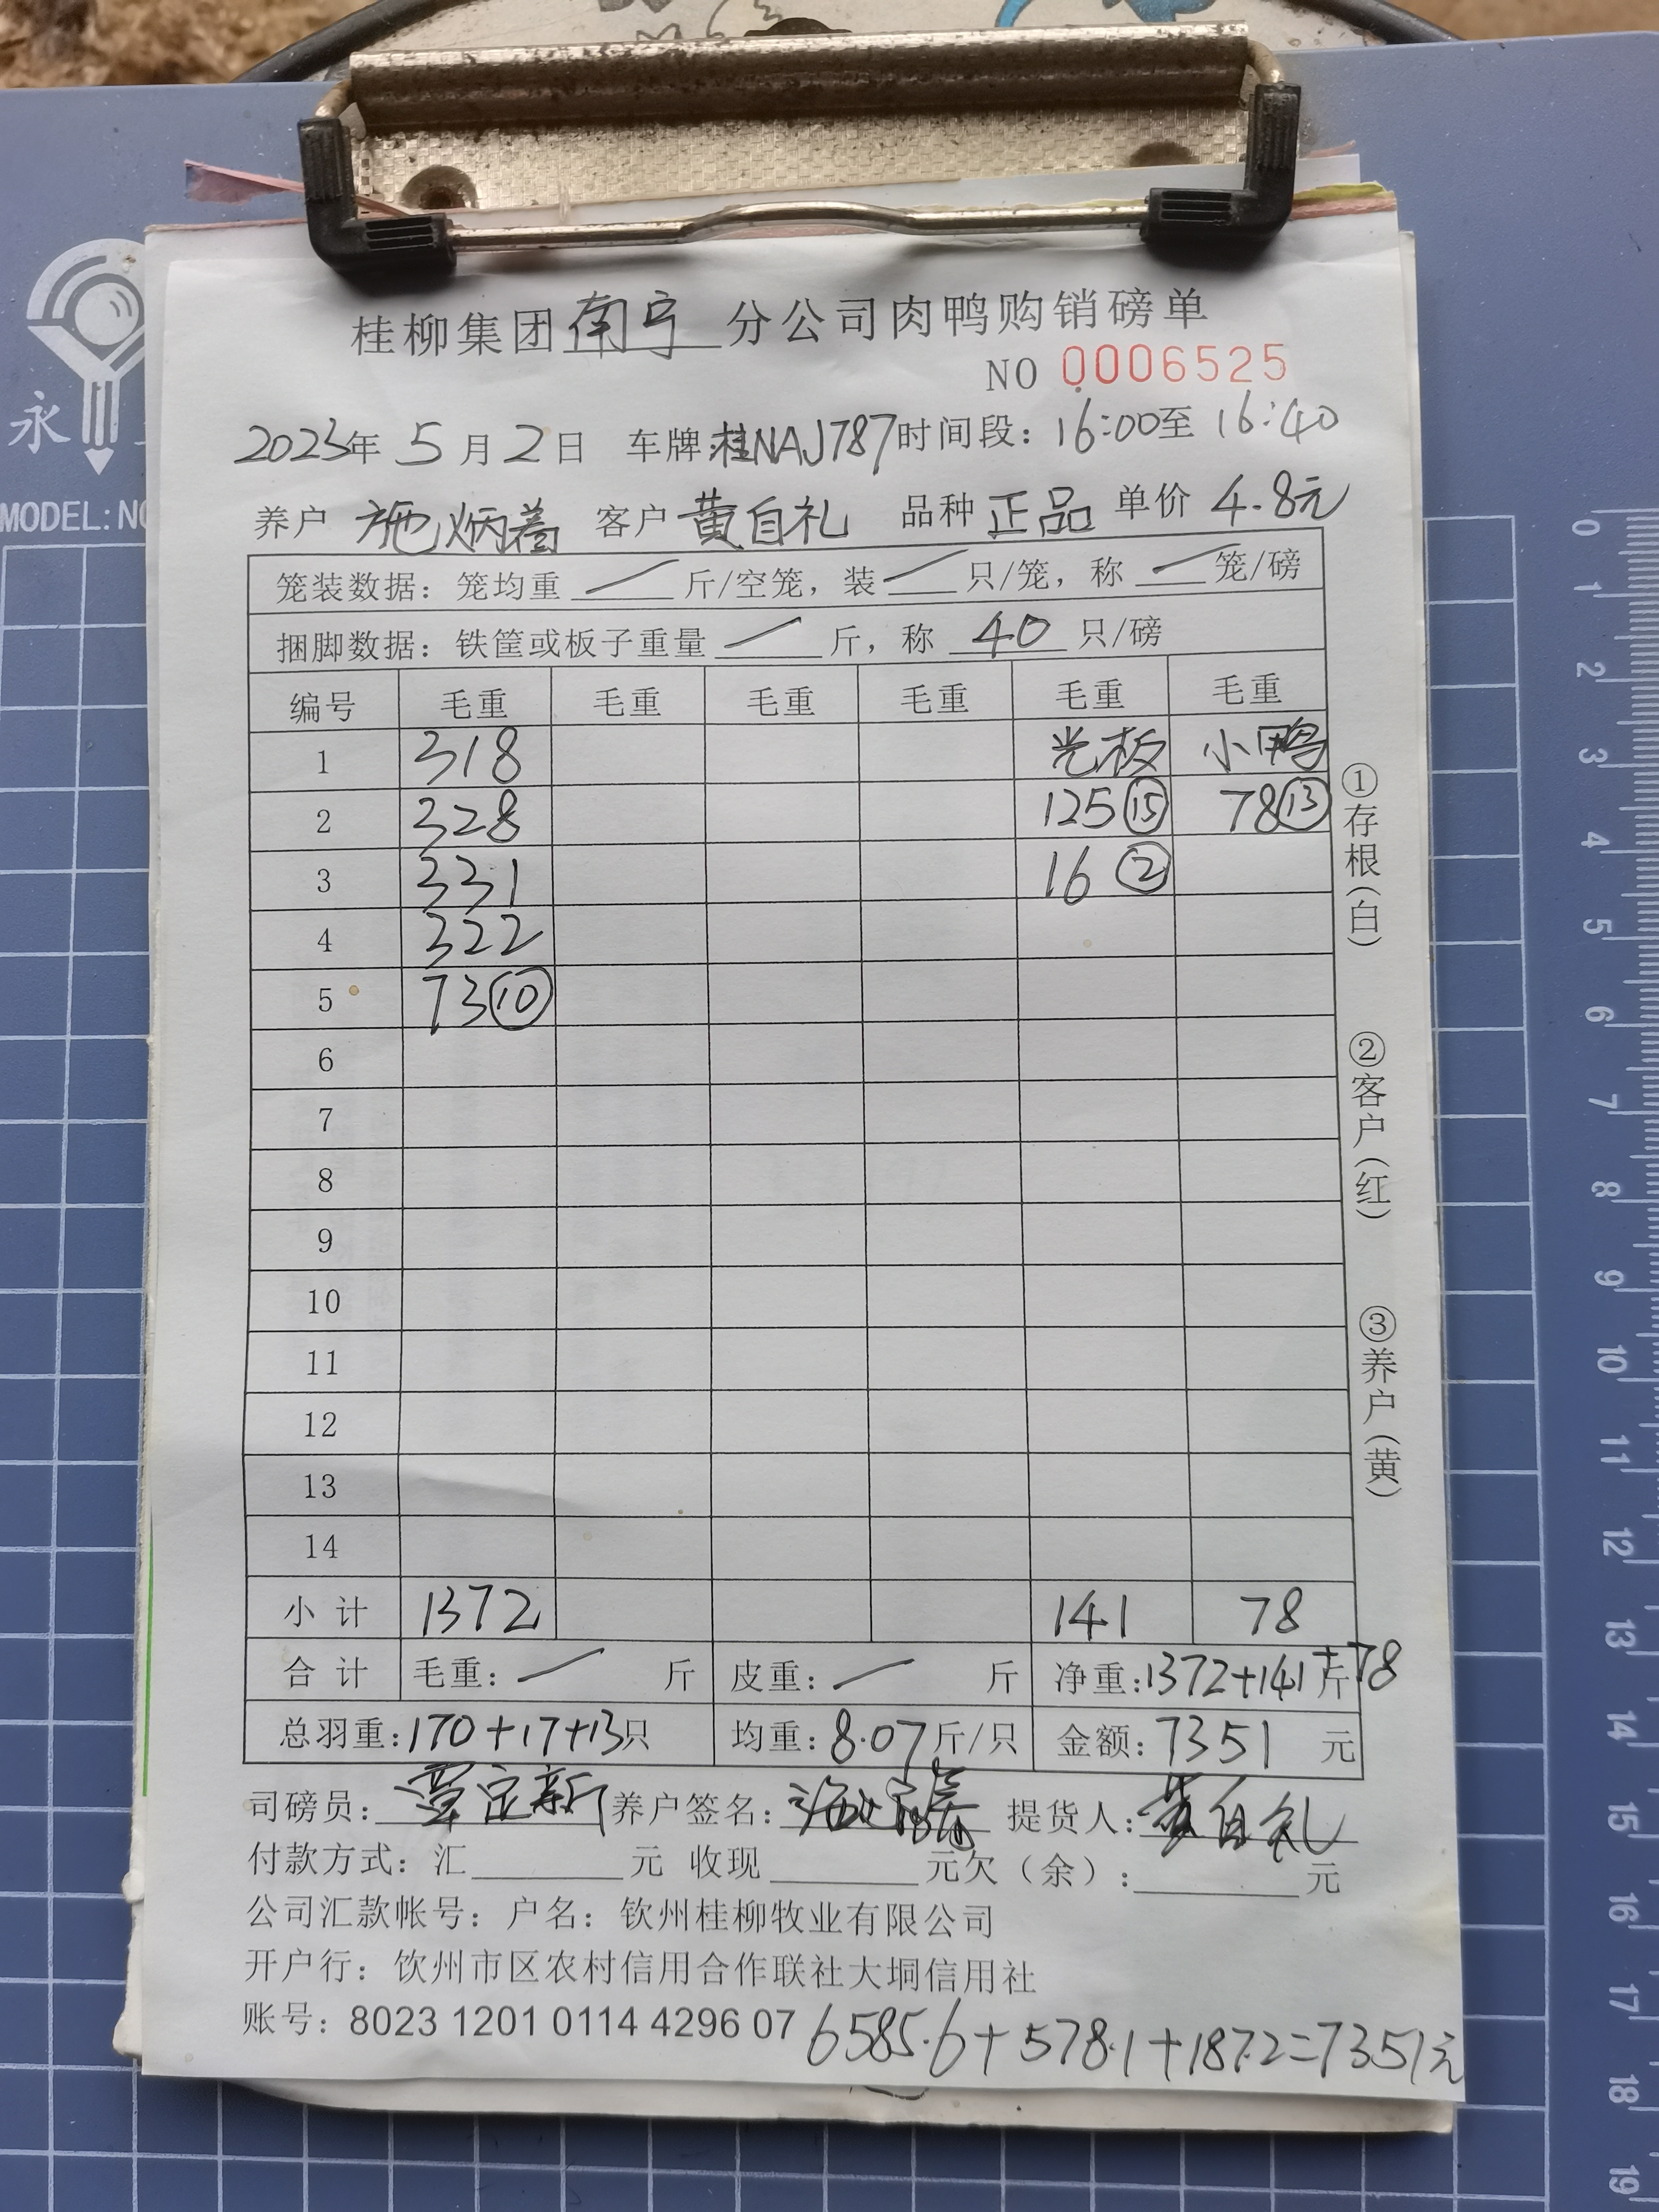 桂柳集团南宁分公司肉鸭购销磅单
NO 0006525
2023年 5月2日 车牌:桂NAJ787时间段：16:00至16:40
养户 施炳 客户 黄自礼 品种 正品 单价 4.8元
笼装数据：笼均重 / 斤/空笼，装 / 只/笼，称 / 笼/磅
捆脚数据：铁筐或板子重量 / 斤，称 40 只/磅
编号 毛重 毛重 毛重 毛重 毛重 毛重
1 318 光板 小鸭
2 328 125⑮ 78⑬
3 331 16②
4 322
5 73⑩
6
7
8
9
10
11
12
13
14
小计 1372 141 78
合计 毛重：/ 斤 皮重：/ 斤 净重:1372+141+78斤
总羽重:170+17+13只 均重:8.07斤/只 金额:7351元
司磅员：覃定新 养户签名： 提货人:黄自礼
付款方式：汇 元 收现 元欠（余）: 元
公司汇款帐号：户名：钦州桂柳牧业有限公司
开户行：钦州市区农村信用合作联社大垌信用社
账号：8023 1201 0114 4296 07
6585.6+578.1+187.2=7351元
①存根（白）
②客户（红）
③养户（黄）
永
MODEL:NO
0
1
2
3
4
5
6
7
8
9
10
11
12
13
14
15
16
17
18
19